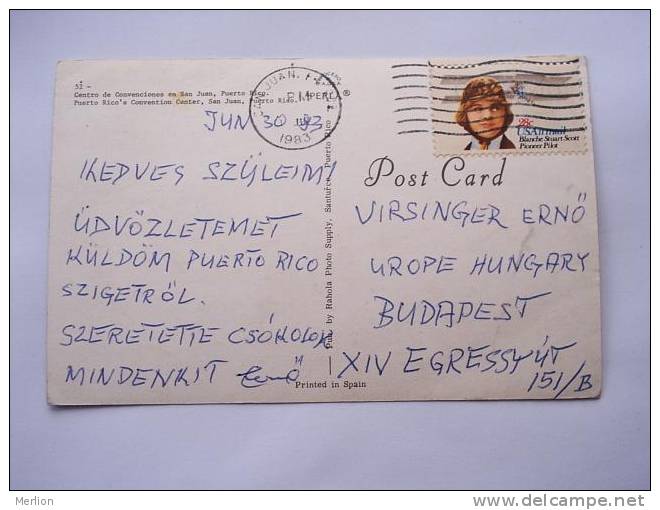 52 -
Centro de Convenciones en San Juan, Puerto Rico.
Puerto Rico's Convention Center, San Juan, Puerto Rico.
SAN JUAN, P.R.
PM
30
1983
28c
USAirmail
Blanche Stuart Scott
Pioneer Pilot
JUN 30 83
KEDVES SZÜLEIM!
ÜDVÖZLETEMET
KÜLDÖM PUERTO RICO
SZIGETRŐL.
SZERETETTE CSÓKOLOK
MINDENKIT Ernő
Pub. by Rahola Photo Supply, Santurce, Puerto Rico
Post Card
VIRSINGER ERNŐ
UROPE HUNGARY
BUDAPEST
XIV EGRESSY ÚT
151/B
Printed in Spain
Merlion
www.delcampe.net